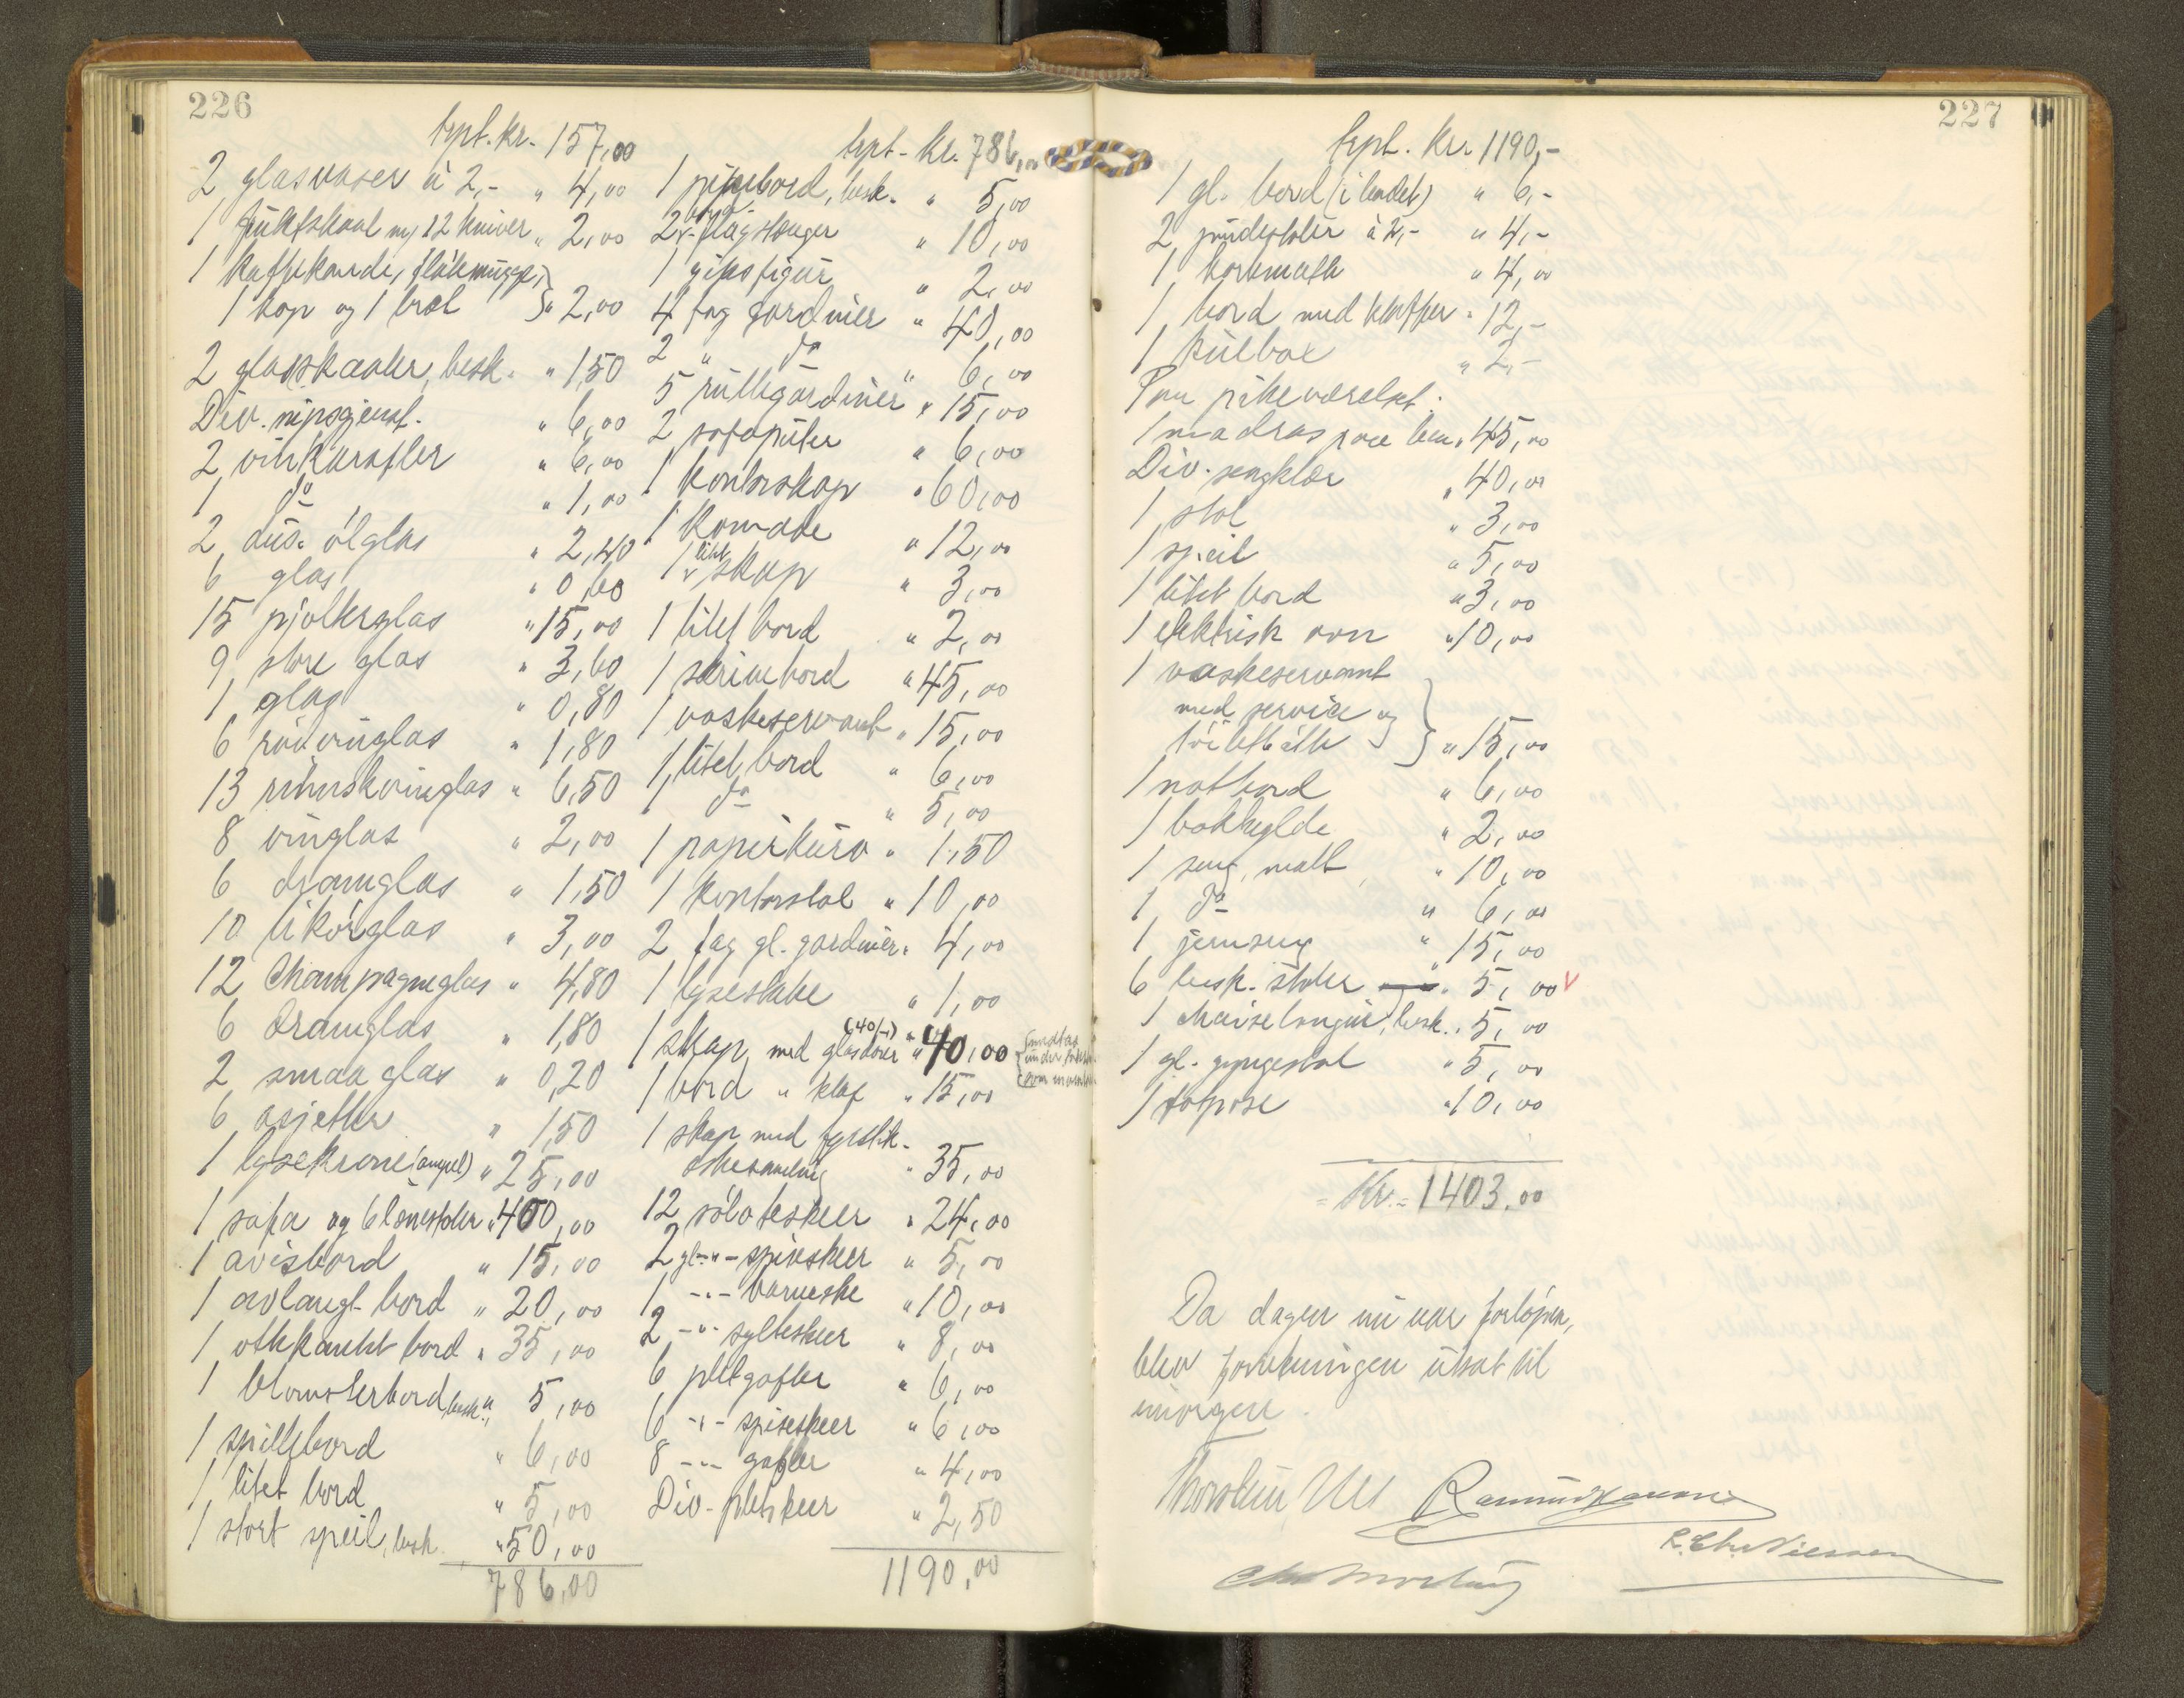 226
trpt. kr. 157,00
2 glasvaser à 2,- " 4,00
1 fruktskaal m/ 12 kniver " 2,00
1 kaffekande, fløtemugge,
1 kop og 1 bræt } " 2,00
2 glasskaaler, besk. " 1,50
Div. nipsgjenst. " 6,00
2 vinkarafler " 6,00
1 do " 1,00
2 dus. ølglas " 2,40
6 glas " 0,60
15 pjolterglas " 15,00
9 store glas " 3,60
1 glas " 0,80
6 rødvinglas " 1,80
13 rhinskvinglas " 6,50
8 vinglas " 2,00
6 dramglas " 1,50
10 likørglas " 3,00
12 Champagneglas " 4,80
6 dramglas " 1,80
2 smaa glas " 0,20
6 asjetter " 1,50
1 lysekrone (ampel) " 25,00
1 sofa og 6 lænestoler " 400,00
1 avisbord " 15,00
1 avlangt bord " 20,00
1 ottekantet bord " 35,00
1 blomsterbord, besk. " 5,00
1 spillebord " 6,00
1 litet bord " 5,00
1 stort speil, besk. " 50,00
786,00
trpt - kr. 786,00
1 pikebord, besk. " 5,00
2 flagstænger " 10,00
1 gipsfigur " 2,00
4 fag gardiner " 40,00
2 " do " 6,00
5 rullegardiner " 15,00
2 sofaputer " 6,00
1 kontorskap " 60,00
1 komode " 12,00
1 litet skap " 3,00
1 litet bord " 2,00
1 skrivebord " 45,00
1 vaskeservant " 15,00
1 litet bord " 6,00
1 do " 5,00
1 papirkurv " 1,50
1 kontorstol " 10,00
2 fag gl. gardiner " 4,00
1 lysestake " 1,00
1 skap med glasdører (40/-) " 40,00
1 bord " klaf " 15,00
1 skap med fyrstik-
æskesamling " 35,00
12 sølvteskeer " 24,00
2 gl. -"- spiseskeer " 5,00
1 -"- barneske " 10,00
2 -"- sylteskeer " 8,00
6 pletgafler " 6,00
6 -"- spiseskeer " 6,00
8 -"- gafler " 4,00
Div. pletskeer " 2,50
1190,00
227
trpt. kr. 1190,-
1 gl. bord (i badet) " 6,-
2 pindestoler à 2,- " 4,-
1 korkmatte " 4,00
1 bord med klaffer " 12,-
1 kulbox " 2,-
Paa pikeværelset:
1 madras paa ben " 45,00
Div. sengklær " 40,00
1 stol " 3,00
1 speil " 5,00
1 litet bord " 3,00
1 elektrisk ovn " 10,00
1 vaskeservant
med service og
toiletbøtte } " 15,00
1 natbord " 6,00
1 bokhylde " 2,00
1 seng, malt " 10,00
1 do " 6,00
1 jernseng " 15,00
6 besk. stoler " 5,00 v
1 chaiselongue, besk. " 5,00
1 gl. gyngestol " 5,00
1 " 10,00
= Kr. = 1403.00
Da dagen nu var forløpen,
blev forretningen utsat til
imorgen.
Thorstein
R. Chr. Nielssen